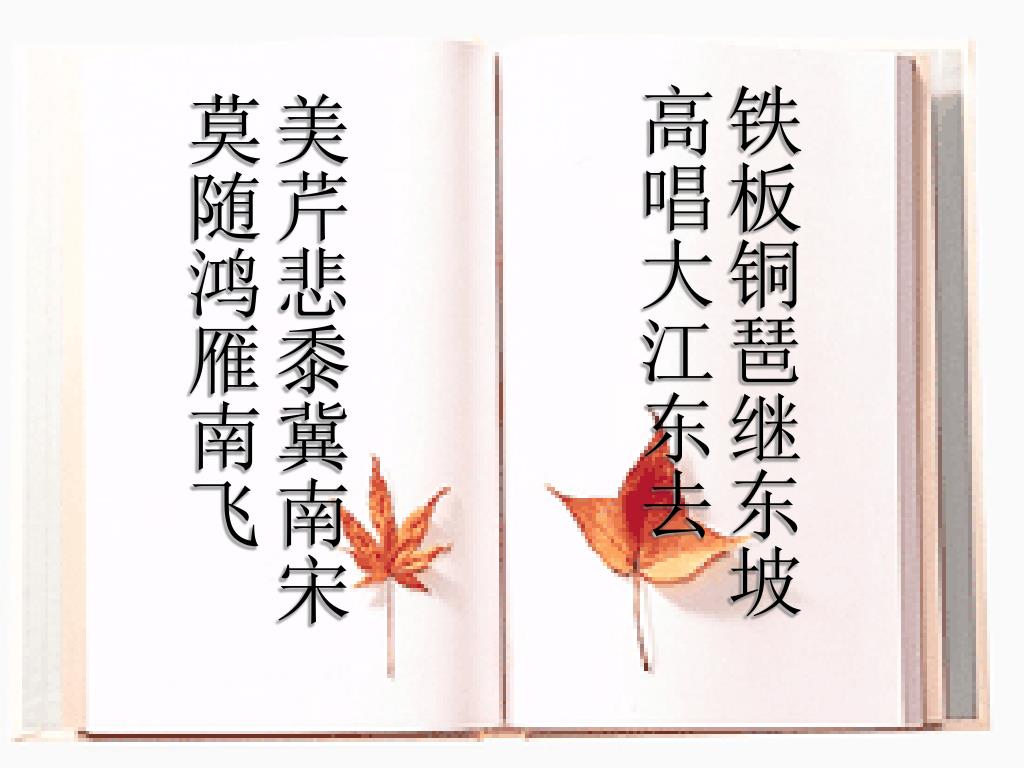 铁板铜琶继东坡
高唱大江东去
美芹悲黍冀南宋
莫随鸿雁南飞